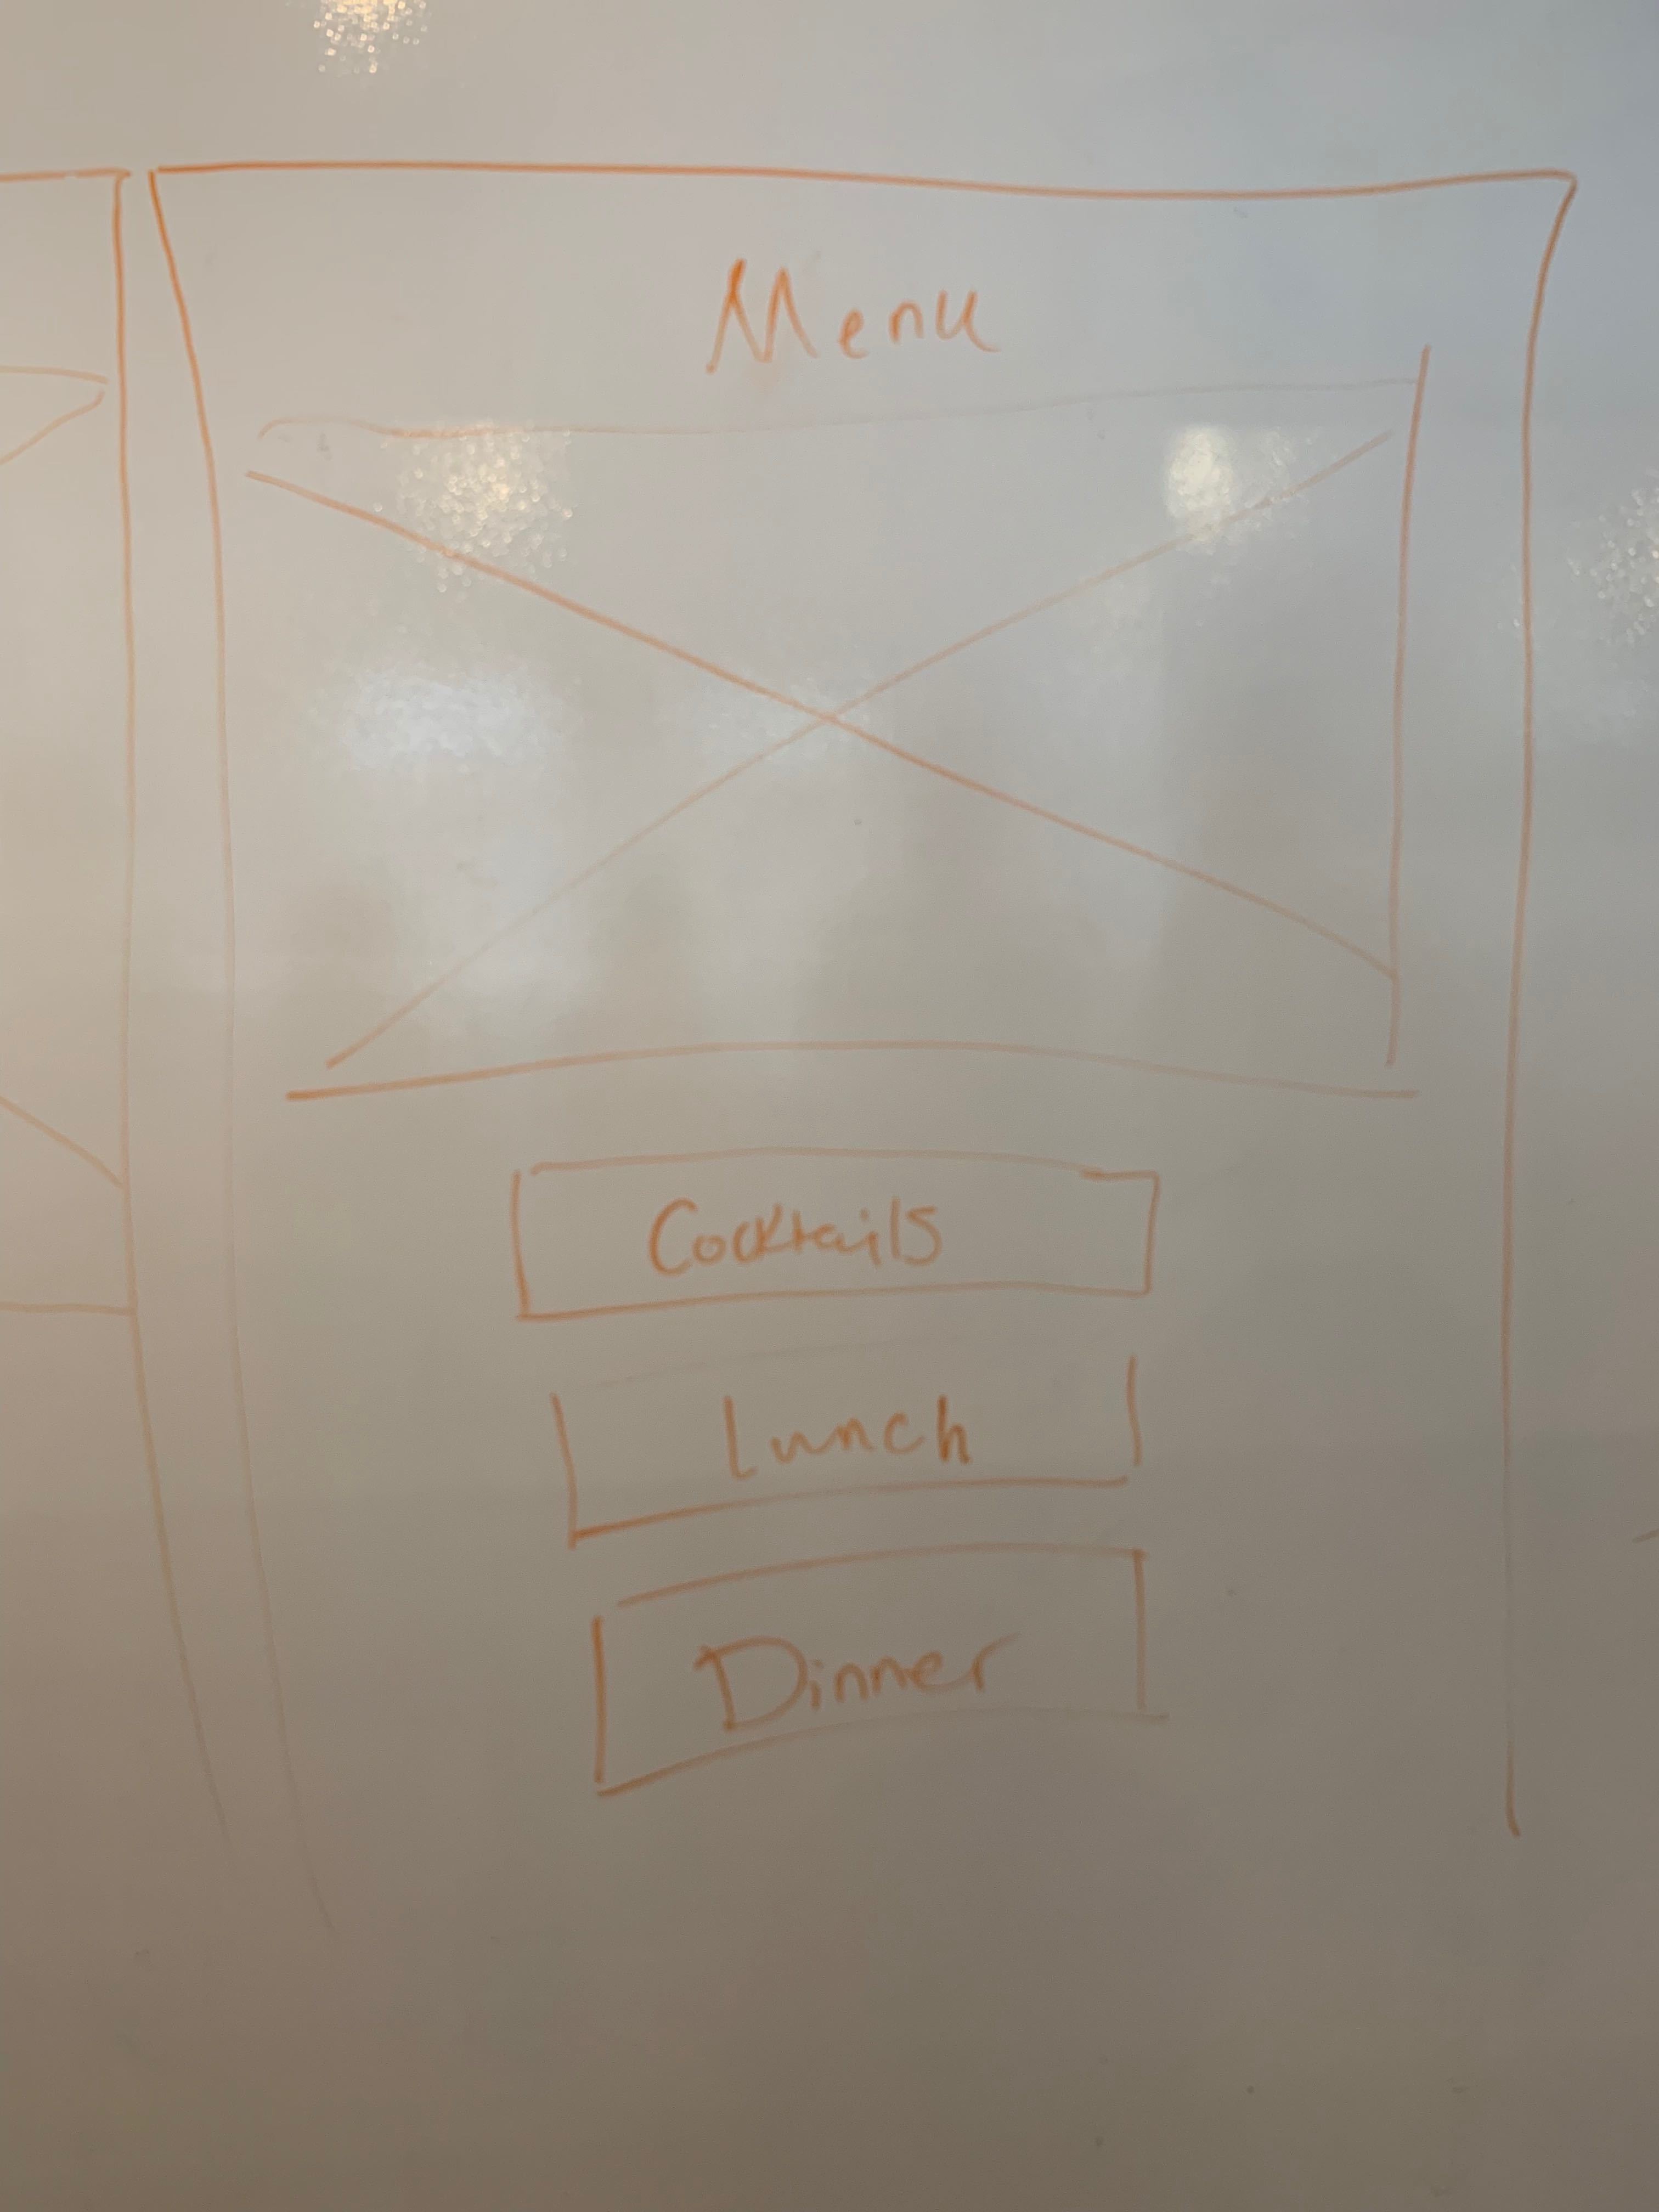 Menu
Cocktails
Lunch
Dinner